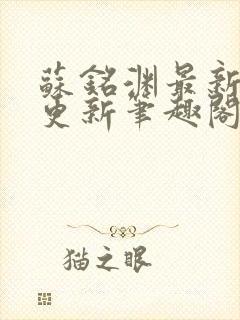 蘇銘淵最新
更新筆趣閣
猫之眼